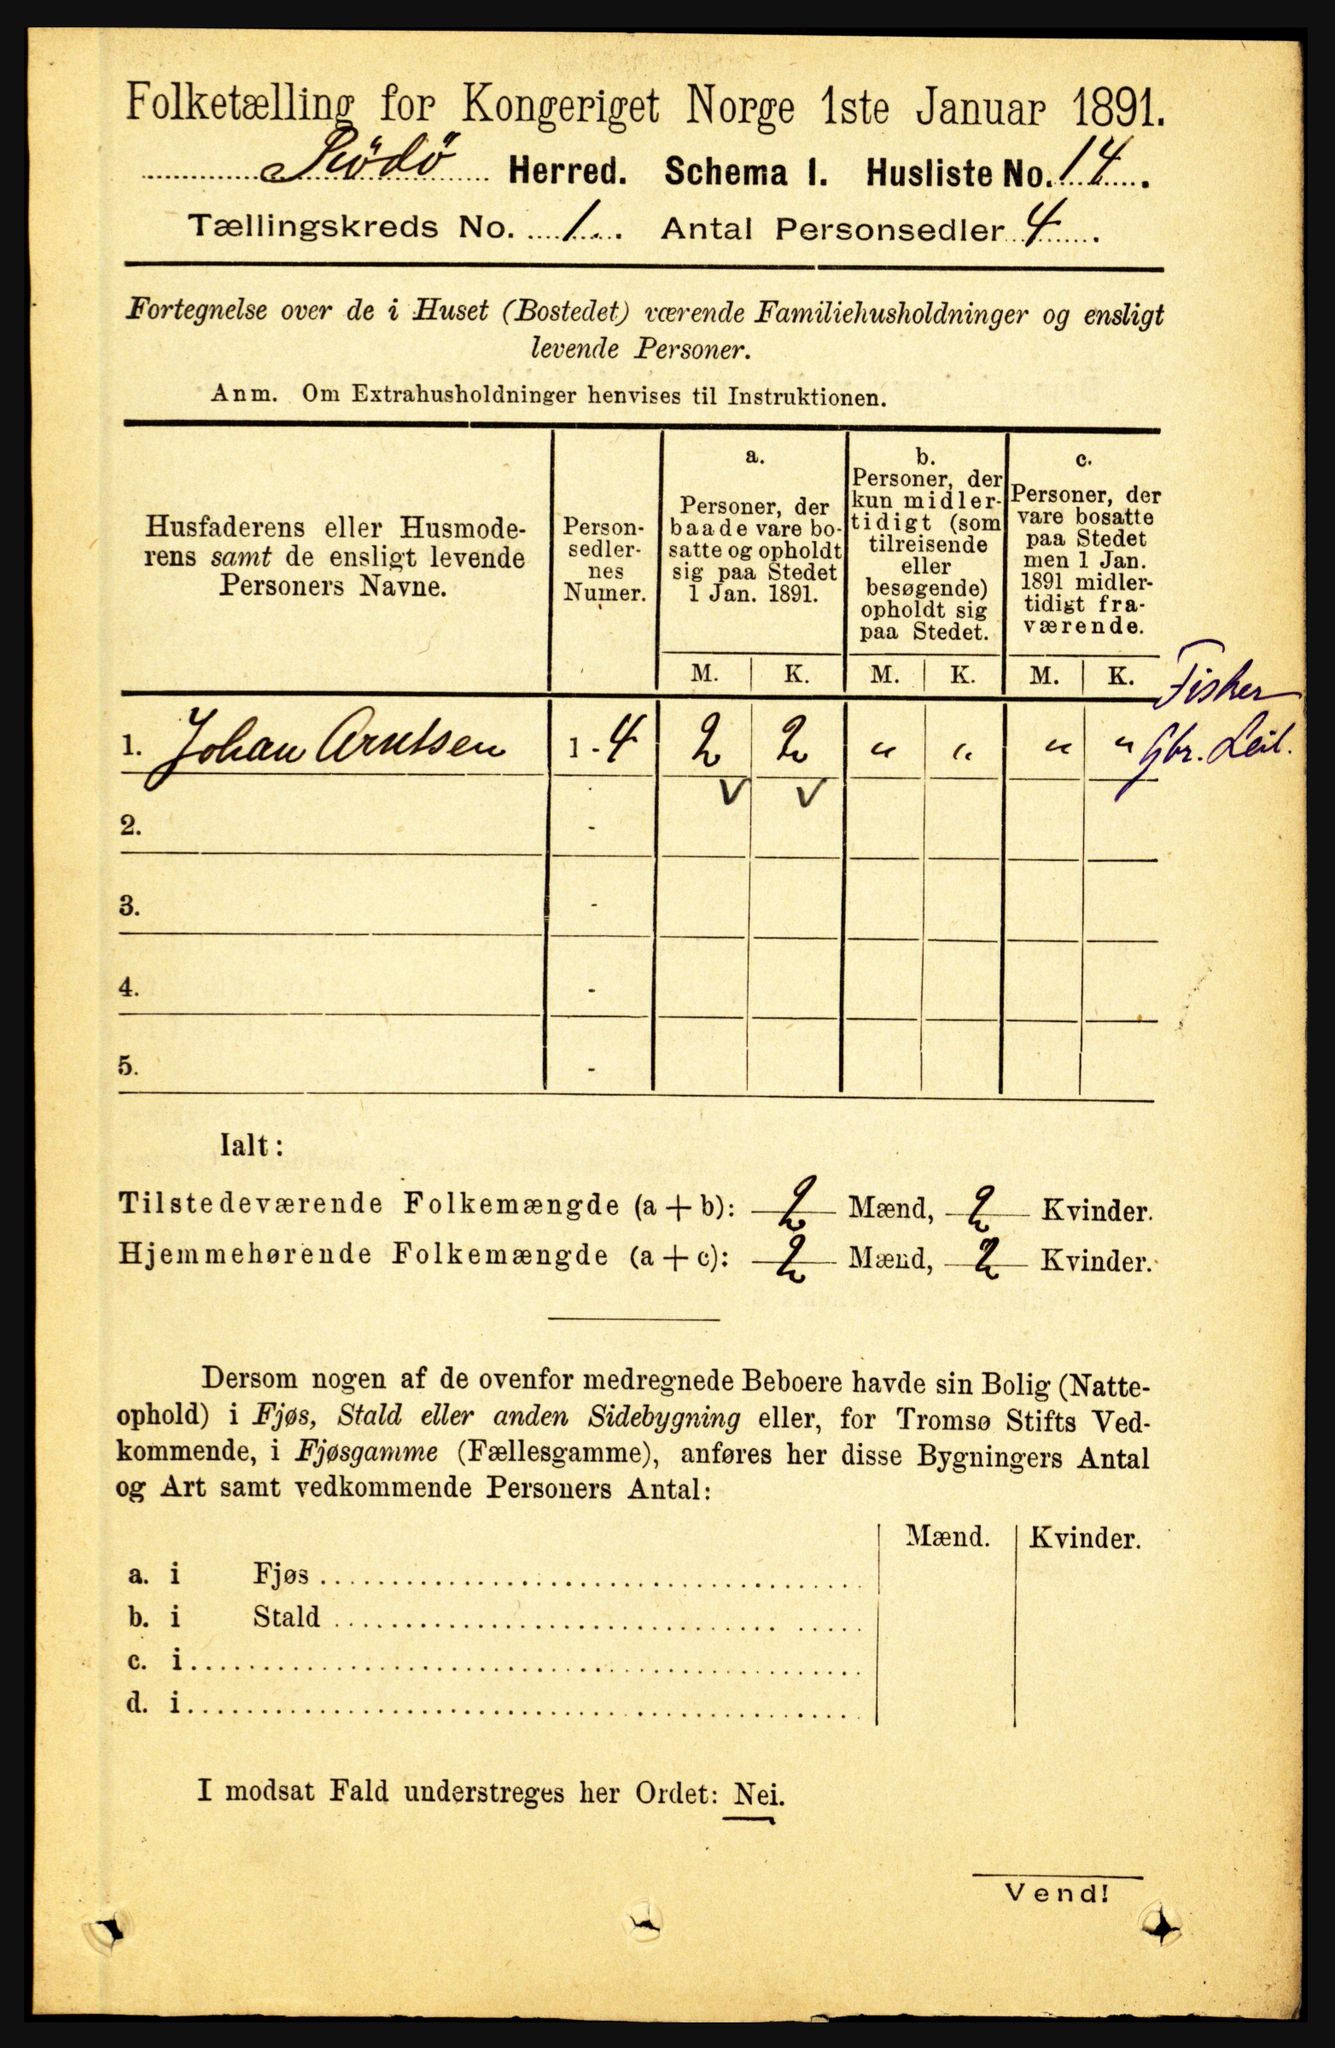 Folketælling for Kongeriget Norge 1ste Januar 1891.
Rödö Herred. Schema I. Husliste No. 14.
Tællingskreds No. 1. Antal Personsedler 4.
Fortegnelse over de i Huset (Bostedet) værende Familiehusholdninger og ensligt
levende Personer.
Anm. Om Extrahusholdninger henvises til Instruktionen.
Husfaderens eller Husmode-
rens samt de ensligt levende
Personers Navne.
Person-
sedler-
nes
Numer.
a.
Personer, der
baade vare bo-
satte og opholdt
sig paa Stedet
1 Jan. 1891.
b.
Personer, der
kun midler-
tidigt (som
tilreisende
eller
besøgende)
opholdt sig
paa Stedet.
c.
Personer, der
vare bosatte
paa Stedet
men 1 Jan.
1891 midler-
tidigt fra-
værende.
M. K. M. K. M. K.
Fisker
1. Johan Arntsen 1-4 2 2 „ „ „ „ Gbr. Leil.
V V
2. -
3. -
4. -
5. -
Ialt:
Tilstedeværende Folkemængde (a + b): 2 Mænd, 2 Kvinder.
Hjemmehørende Folkemængde (a + c): 2 Mænd, 2 Kvinder.
Dersom nogen af de ovenfor medregnede Beboere havde sin Bolig (Natte-
ophold) i Fjøs, Stald eller anden Sidebygning eller, for Tromsø Stifts Ved-
kommende, i Fjøsgamme (Fællesgamme), anføres her disse Bygningers Antal
og Art samt vedkommende Personers Antal:
Mænd. Kvinder.
a. i Fjøs
b. i Stald
c. i
d. i
I modsat Fald understreges her Ordet: Nei.
Vend!